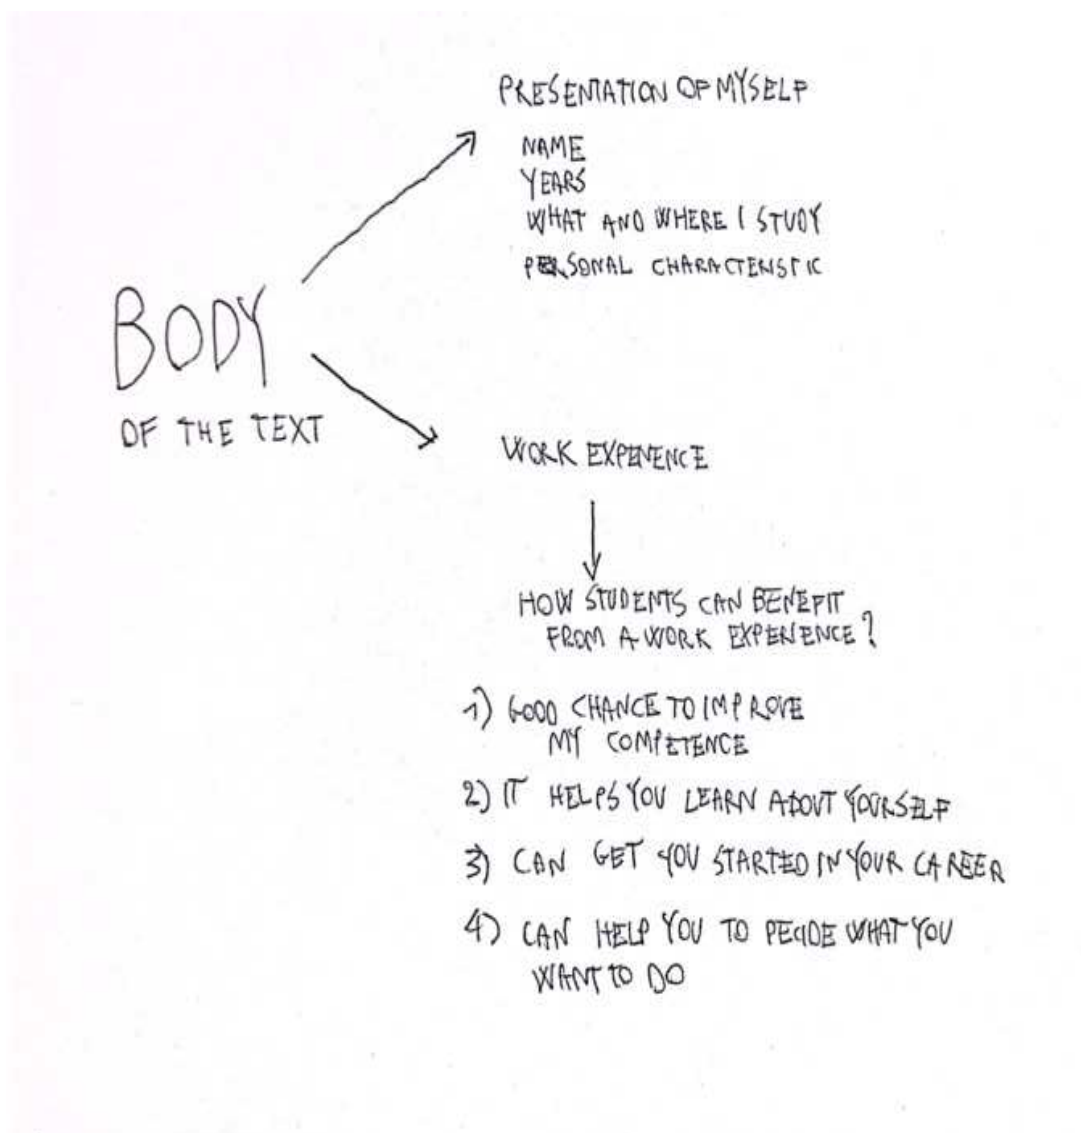 PRESENTATION OF MYSELF
NAME
YEARS
WHAT AND WHERE I STUDY
PERSONAL CHARACTERISTIC
BODY
OF THE TEXT
WORK EXPERIENCE
HOW STUDENTS CAN BENEFIT
FROM A WORK EXPERIENCE?
1) GOOD CHANCE TO IMPROVE
MY COMPETENCE
2) IT HELPS YOU LEARN ABOUT YOURSELF
3) CAN GET YOU STARTED IN YOUR CAREER
4) CAN HELP YOU TO DECIDE WHAT YOU
WANT TO DO